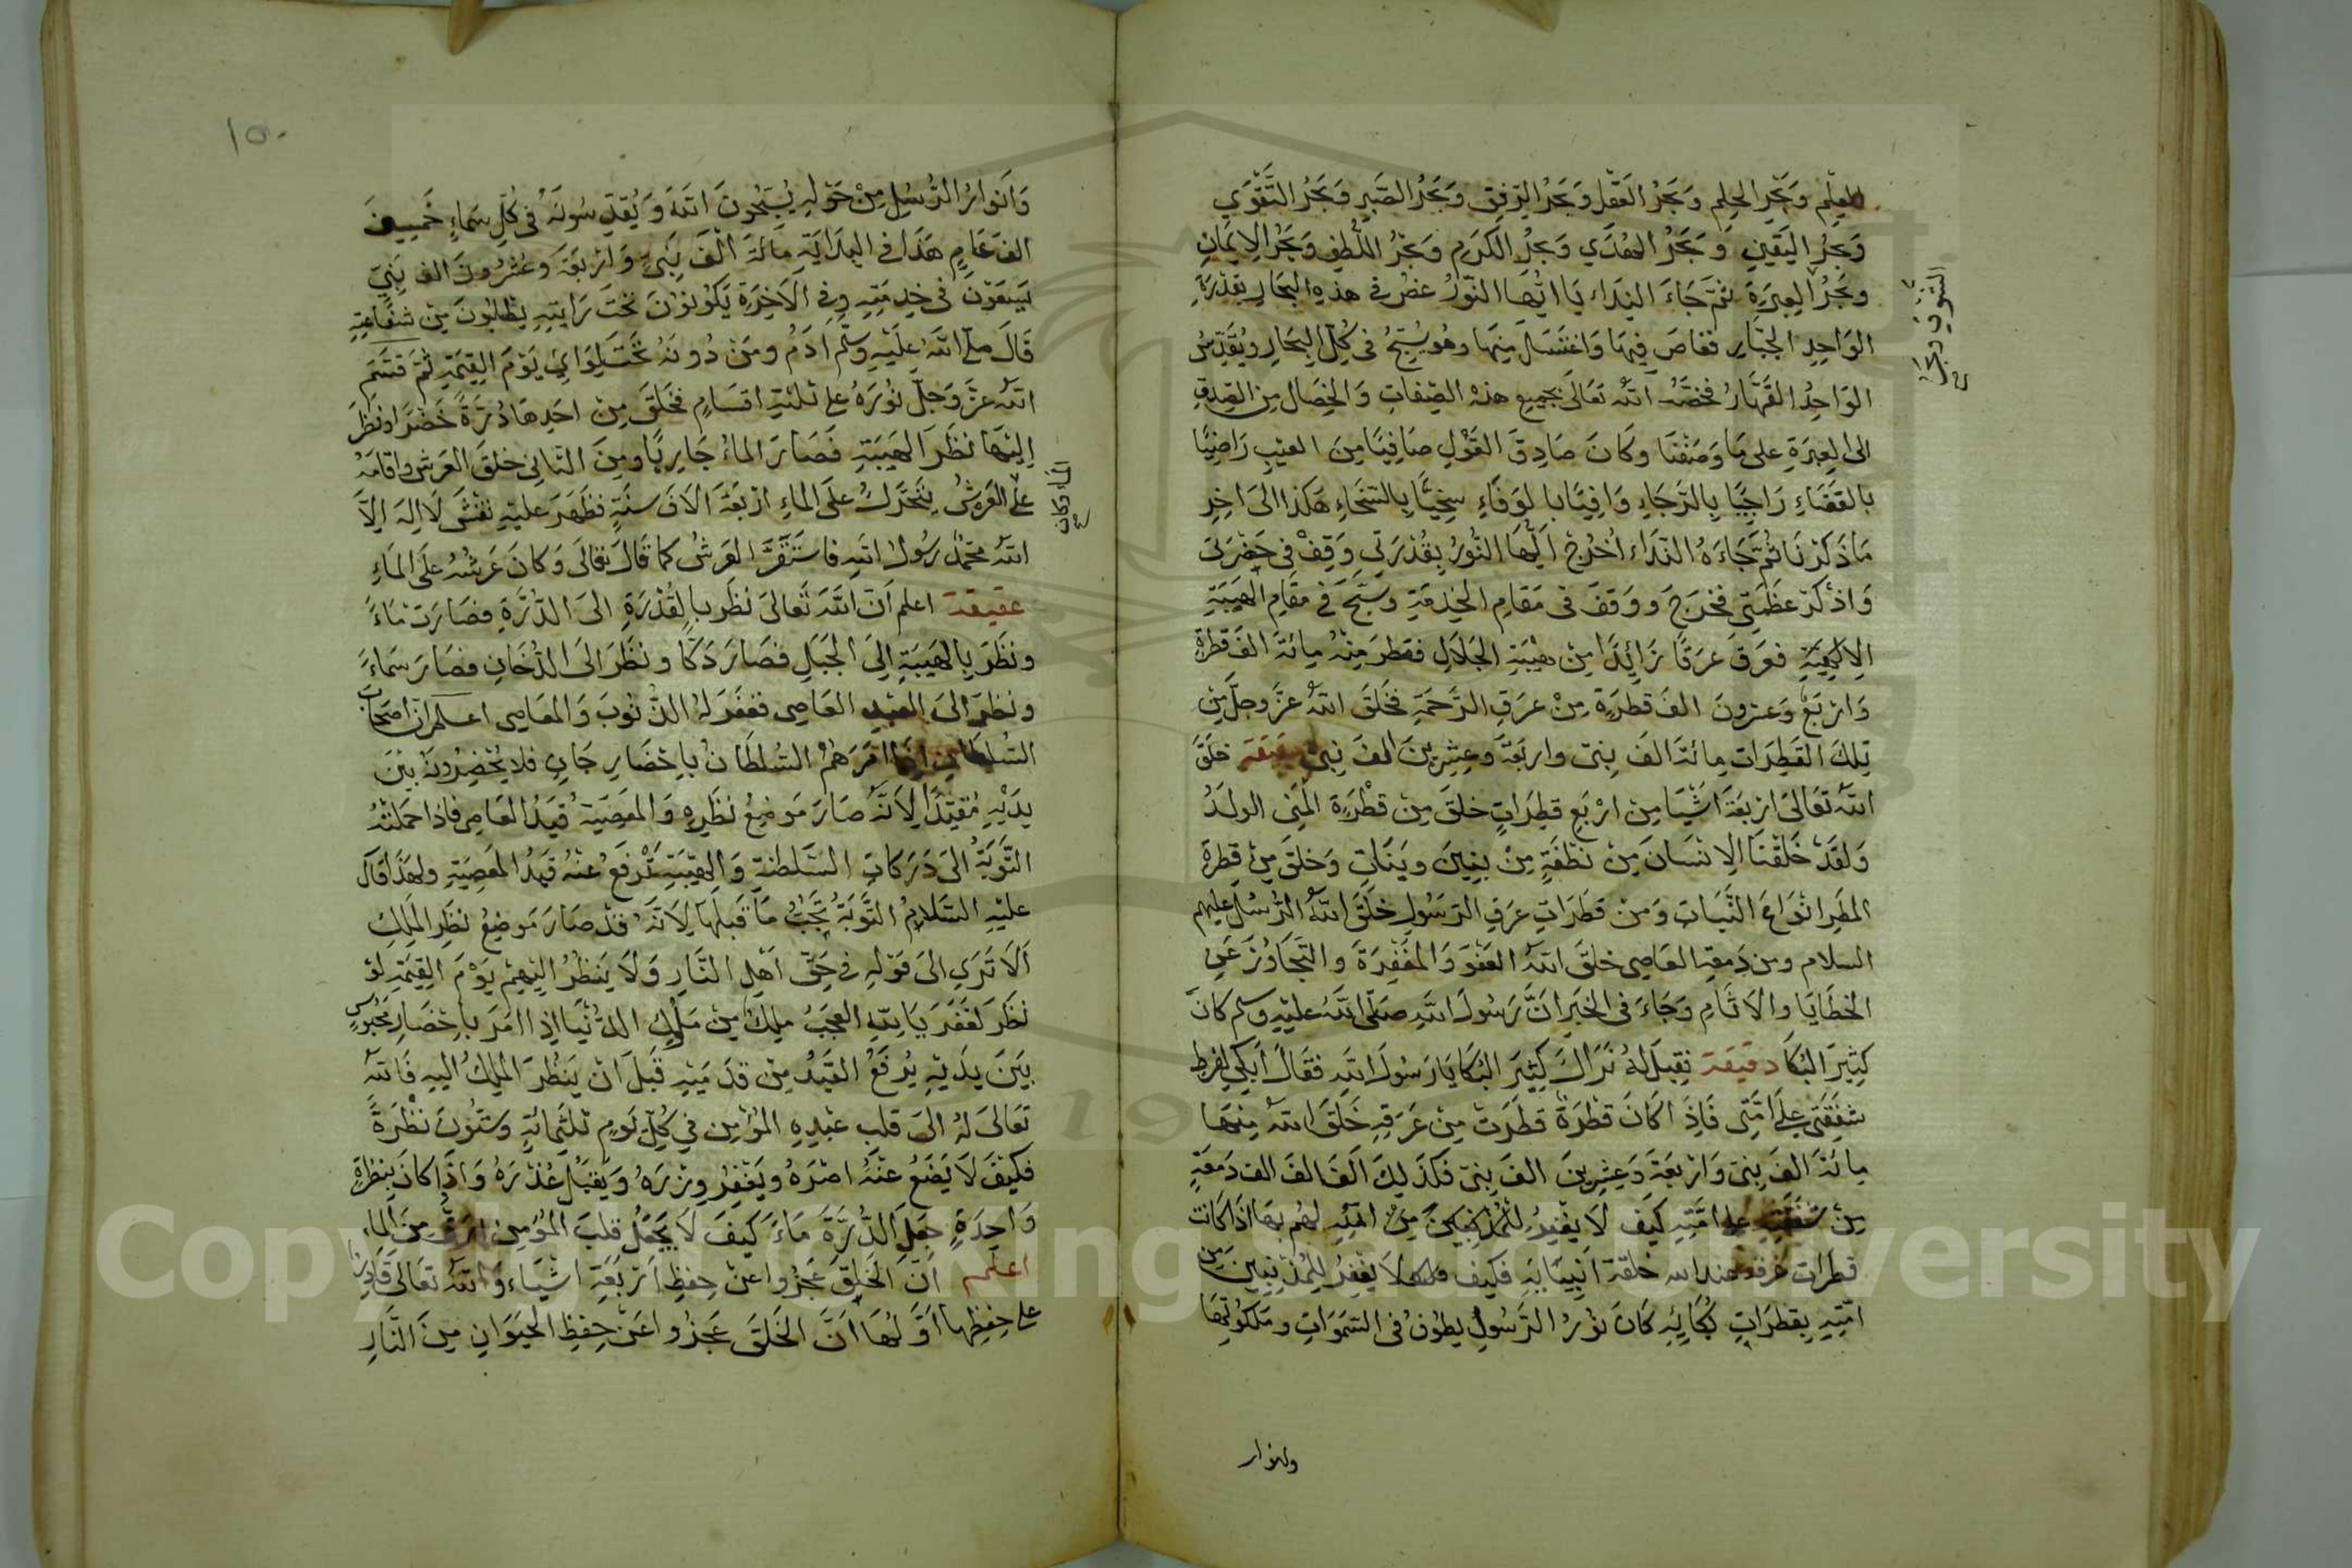 العلم وبحر الحلم وبحر العقل وبحر الرفق وبحر الصبر وبحر التقوي
وبحر اليقين وبحر الهدي وبحر الكرم وبحر اللطف وبحر الايمان
وبحر العبرة ثم جاء النداء يا ايها النور غص في هذه البحار بقدرة
الواحد الجبار فغاص فيها واغتسل منها وهو يسبح في كل البحار ويقدس
الواحد القهار فخصه الله تعالى بجميع هذه الصفات والخصال من الصدق
الى العبرة على ما وصفنا وكان صادق القول صافيا من العيب راضيا
بالقضاء راجيا بالرجاء وافيا بالوفاء سخيا بالسخاء هكذا الى اخر
ما ذكرنا ثم جاءه النداء اخرج ايها النور بقدرتي وقف في حضرتي
واذكر عظمتي فخرج ووقف في مقام الخدمة وسبح في مقام الهيبة
الالهية فعرق عرقا زائدا من هيبة الجلال فقطر منه مائة الف قطرة
واربع وعشرون الف قطرة من عرق الرحمة فخلق الله عز وجل من
تلك القطرات مائة الف نبي واربعة وعشرين الف نبي دقيقة خلق
الله تعالى اربعة اشيا من اربع قطرات خلق من قطرة المني الولد
ولقد خلقنا الانسان من نطفة من بنين وبنات وخلق من قطرة
المطر انواع النبات ومن قطرات عرق الرسول خلق الله الرسل عليهم
السلام ومن دمعة العاصي خلق الله العفو والمغفرة والتجاوز عن
الخطايا والاثام وجاء في الخبر ان رسول الله صلى الله عليه وسلم كان
كثير البكا دقيقة فقيل له نراك كثير البكا يا رسول الله فقال ابكي لفرط
شفقتي على امتي فاذا كان قطرة قطرت من عرقه خلق الله منها
مائة الف نبي واربعة وعشرين الف نبي فكذلك الف الف الف دمعة
من شفقته على امته كيف لا يغفر للمذنبين من امته لهم بها اذا كانت
قطرات عرقه عند الله خلقة انبيائه فكيف لا يغفر للمذنبين من
امته بقطرات بكائه كان نور الرسول يطوف في السموات وملكوتها
وانوار
وانوار الرسل من حوله يسبحون الله ويقدسونه في كل سماء خمسين
الف عام هذا في البداية مائة الف نبي واربعة وعشرون الف نبي
يسعون في خدمته وفي الاخرة يكونون تحت رايته يطلبون من شفاعته
قال صلى الله عليه وسلم ادم ومن دونه تحت لوائي يوم القيمة ثم قسم
الله عز وجل نوره على ثلثة اقسام فخلق من احدها درة خضرا ونظر
اليها نظر الهيبة فصار الماء جاريا ومن الثاني خلق العرش واقامه
على العرش يتحرك على الماء اربعة الاف سنة فظهر عليه نقش لا اله الا
الله محمد رسول الله فاستقر العرش كما قال تعالى وكان عرشه على الماء
اعلم ان الله تعالى نظر بالقدرة الى الدرة فصارت ماء
ونظر بالهيبة الى الجبل فصار دكا ونظر الى الدخان فصار سماء
ونظر الى العبد العاصي فغفر له الذنوب والمعاصي اعلم ان اصحاب
السلطان اذا امرهم السلطان باحضار جان فلا يحضرونه بين
يديه مقيدا لانه صار موضع نظره والمعصية قيد العاصي فاذا حملته
التوبة الى دركات السلطنة والهيبة ترفع عنه قيد المعصية ولهذا قال
عليه السلام التوبة تجب ما قبلها لانه قد صار موضع نظر الملك
الا تري الى قوله في حق اهل النار ولا ينظر اليهم يوم القيمة لو
نظر لغفر يا لله العجب ملك من ملوك الدنيا اذا امر باحضار محبوس
بين يديه يرفع القيد من قدميه قبل ان ينظر الملك اليه فالله
تعالى له الى قلب عبده المؤمن في كل يوم ثلثمائة وستون نظرة
فكيف لا يضع عنه اصره ويغفر وزره ويقبل عذره واذا كان بنظرة
واحدة جعل الدرة ماء كيف لا يجعل قلب المؤمن ارق من الماء
اعلم ان الخلق عجزوا عن حفظ اربعة اشياء والله تعالى قادر
على حفظها اولها ان الخلق عجزوا عن حفظ الحيوان من النار
Copyright © King Saud University